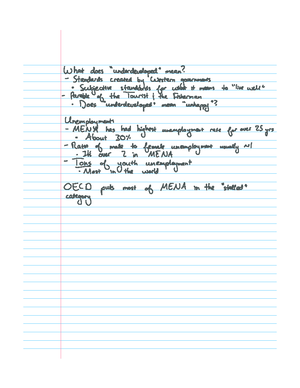 What does "underdeveloped" mean?
- Standards created by Western governments
• Subjective standards for what it means to "live well"
- Parable of the Tourist & the Fisherman
• Does "underdeveloped" mean "unhappy"?
Unemployment:
- MENA has had highest unemployment rate for over 25 yrs
• About 30%
- Ratio of male to female unemployment usually ~1
• It's over 2 in MENA
- Tons of youth unemployment
• Most in the world
OECD puts most of MENA in the "stalled"
category